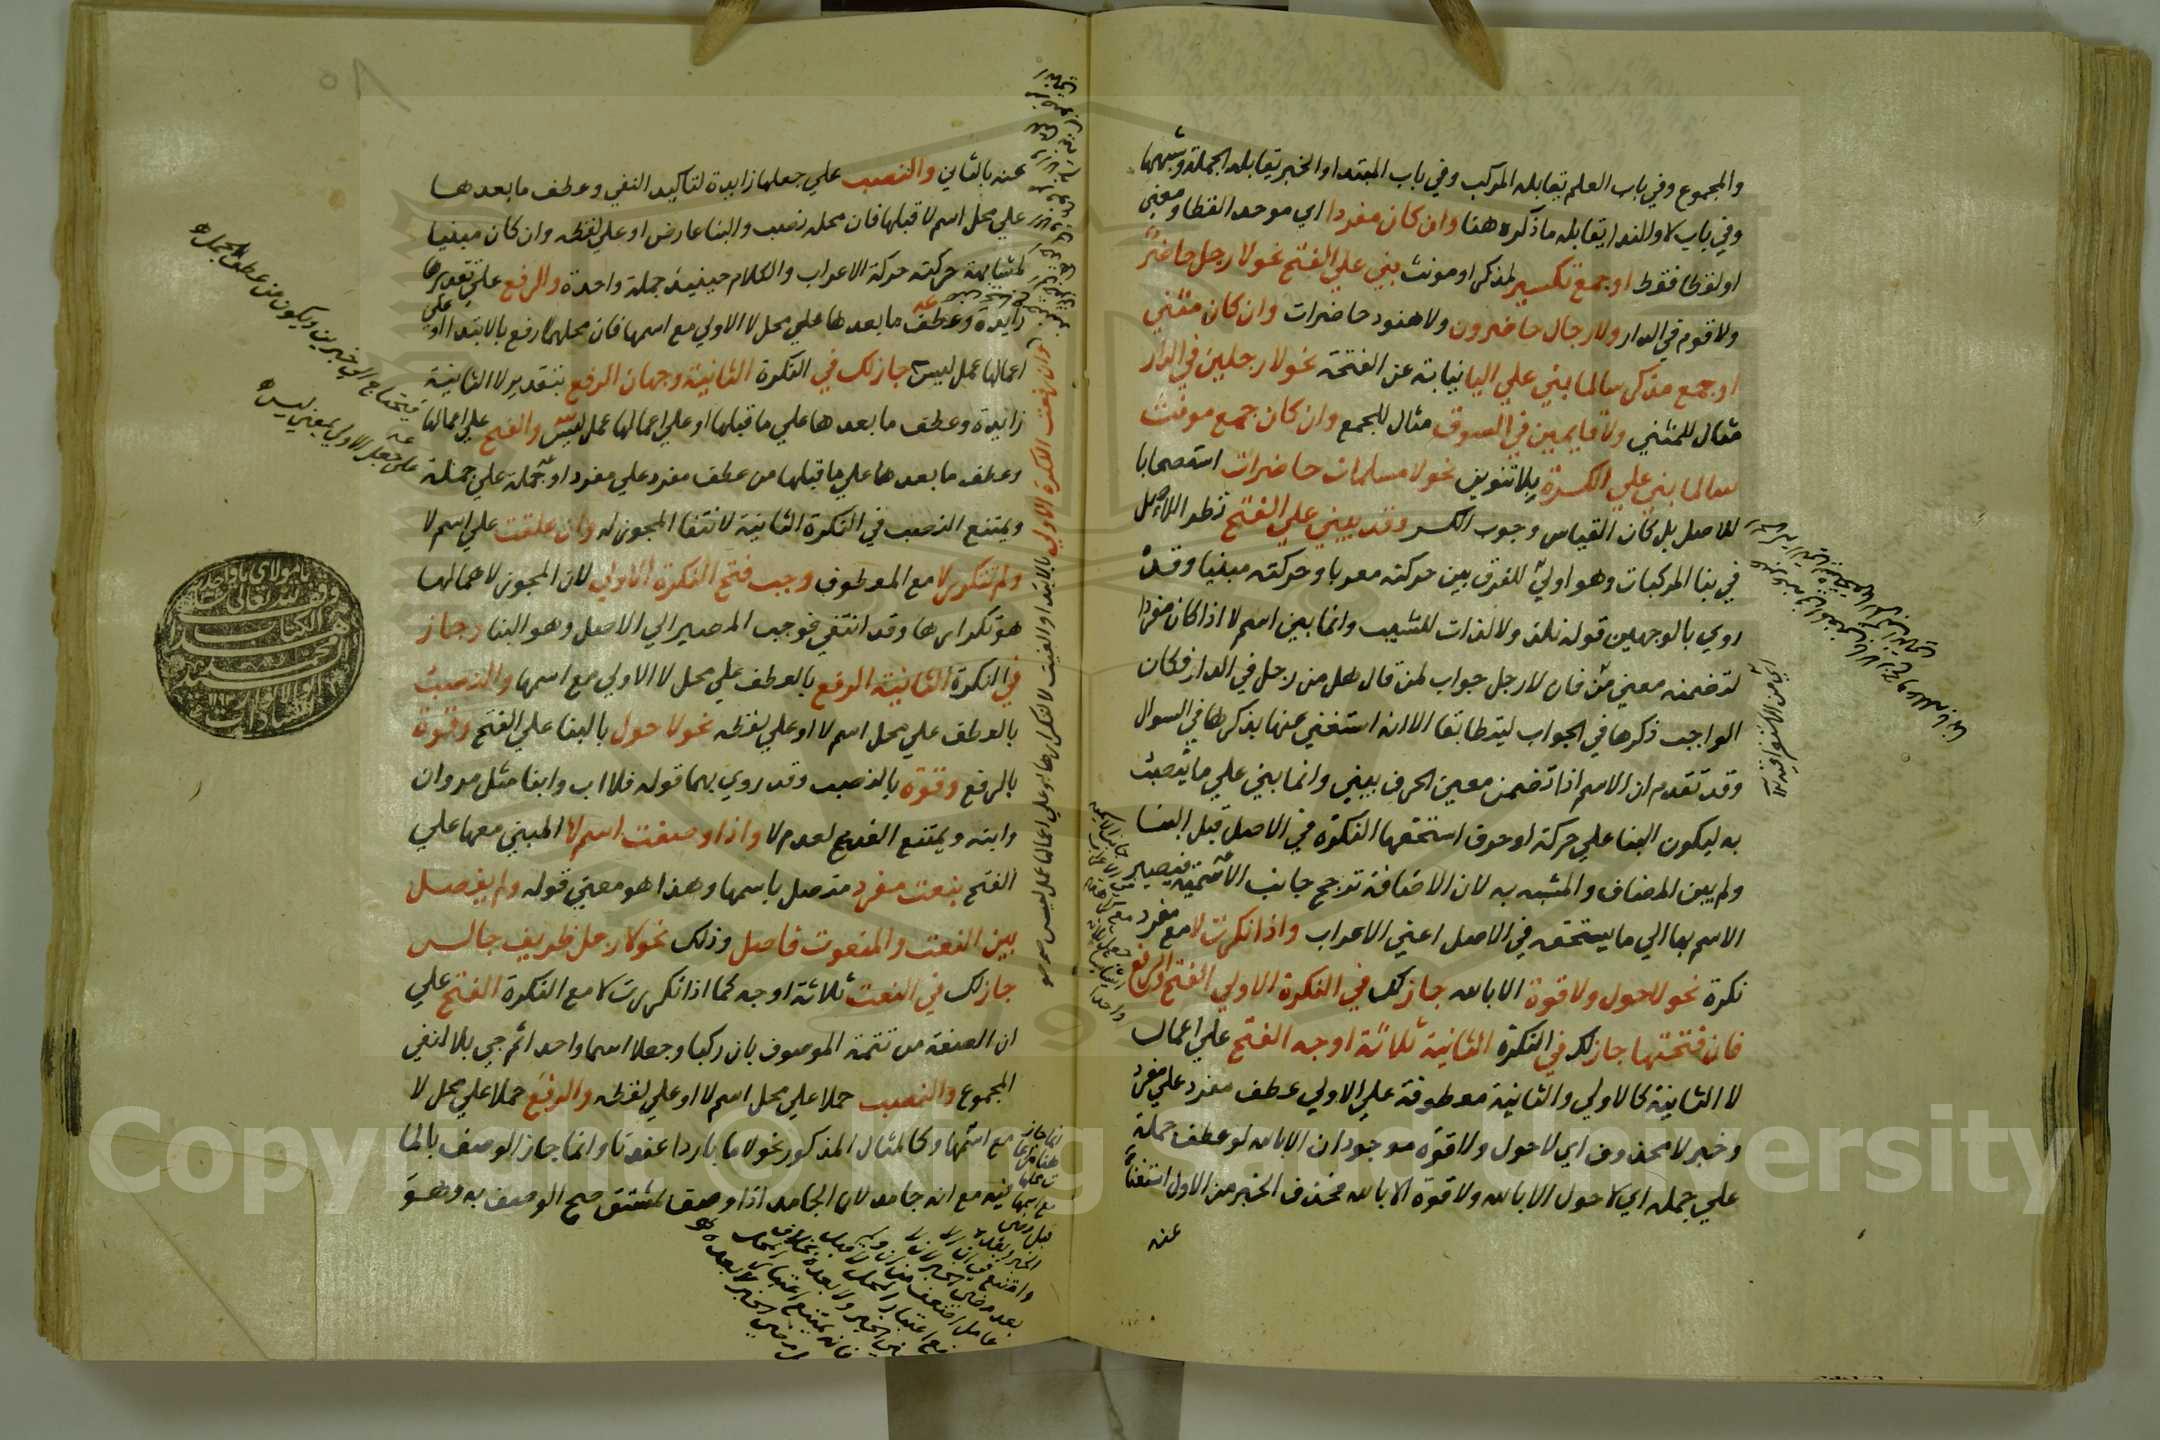 والمجموع وفي باب العلم يقابله المركب وفي باب المبتدا والخبر يقابله الجملة وشبهها
وفي باب لا والندا يقابله ما ذكره هنا وان كان مفردا اي موحد الفظا ومعني
او لفظا فقط او جمع تكسير لمذكر او مونث بني علي الفتح نحو لا رجل حاضر
ولا قوم في الدار ولا رجال حاضرون ولا هنود حاضرات وان كان مثني
او جمع مذكر سالما بني علي اليا نيابة عن الفتحة نحو لا رجلين في الدار
مثال للمثني ولا قايمين في السوق مثال للجمع وان كان جمع مونث
سالما بني علي الكسرة بلا تنوين نحو لا مسلمات حاضرات استصحابا
للاصل بل كان القياس وجوب الكسر وقد يبني علي الفتح نظرا للاصل
في بنا المركبات وهو اولي للفرق بين حركته معربا وحركته مبنيا وقد
روي بالوجهين قوله نلذ ولا لذات للشيب وانما بني اسم لا اذا كان مفردا
لتضمنه معني من فان لا رجل جواب لمن قال هل من رجل في الدار فكان
الواجب ذكرها في الجواب ليتطابقا الا انه استغني عنها بذكرها في السوال
وقد تقدم ان الاسم اذا تضمن معني الحرف بني وانما بني علي ما ينصب
به ليكون البنا علي حركة او حرف استحقها النكرة في الاصل قبل البنا
ولم يبن المضاف والمشبه به لان الاضافة ترجح جانب الاسمية فيصير
الاسم بها الي ما يستحقه في الاصل اعني الاعراب واذا تكررت لا مع مفرد
نكرة نحو لا حول ولا قوة الا بالله جاز لك في النكرة الاولي الفتح والرفع
فان فتحتها جاز لك في النكرة الثانية ثلاثة اوجه الفتح علي اعمال
لا الثانية كالاولي والثانية معطوفة علي الاولي عطف مفرد علي مفرد
وخبر لا محذوف اي لا حول ولا قوة موجودان الا بالله او عطف جملة
علي جمله اي لا حول الا بالله ولا قوة الا بالله فحذف الخبر من الاول استغناء
عنه
عنه بالثاني والنصب علي جعلها زايدة لتاكيد النفي وعطف ما بعدها
علي محل اسم لا قبلها فان محله نصب والبنا عارض او علي لفظه وان كان مبنيا
لمشابهة حركته حركة الاعراب والكلام حينيذ جملة واحدة والرفع علي تقديرها
زايدة وعطف ما بعدها علي محل لا الاولي مع اسمها فان محلهما رفع بالابتدا او علي
اعمالها عمل ليس جاز لك في النكرة الثانية وجهان الرفع بتقدير لا الثانية
زايدة وعطف ما بعدها علي ما قبلها او علي اعمالها عمل ليس والفتح علي اعمالها
وعطف ما بعدها علي ما قبلها من عطف مفرد علي مفرد او جملة علي جملة
ويمتنع النصب في النكرة الثانية لانتفا المجوز له وان عطفت علي اسم لا
ولم تتكرر لا مع المعطوف وجب فتح النكرة الاولي لان المجوز لاهمالها
هو تكرارها وقد انتفي فوجب المصير الي الاصل وهو البنا وجاز
في النكرة الثانية الرفع بالعطف علي محل لا الاولي مع اسمها والنصب
بالعطف علي محل اسم لا او علي لفظه نحو لا حول بالبنا علي الفتح وقوة
بالرفع وقوة بالنصب وقد روي بهما قوله فلا اب وابنا مثل مروان
وابنه ويمتنع الفتح لعدم لا واذا وصفت اسم لا المبني معها علي
الفتح بنعت مفرد متصل باسمها وهذا هو معني قوله ولم يفصل
بين النعت والمنعوت فاصل وذلك نحو لا رجل ظريف جالس
جاز لك في النعت ثلاثة اوجه كما اذا تكررت لا مع النكرة الفتح علي
ان الصفة من تتمة الموصوف بان ركبا وجعلا اسما واحدا ثم جي بلا لنفي
المجموع والنصب حملا علي محل اسم لا او علي لفظه والرفع حملا علي محل لا
مع اسمها وكالمثال المذكور نحو لا ما باردا عندنا وانما جاز الوصف بالما
فيه مع انه جامد لان الجامد اذا وصف بمشتق صح الوصف به وهو
وان رفعت النكرة الاولي بالابتدا والغيت لا لتكرارها او علي اعمالها عمل ليس
فيحتاج الي خبرين ويكون من عطف الجمل
علي جعل الاولي بمعني ليس
Copyright © King Saud University